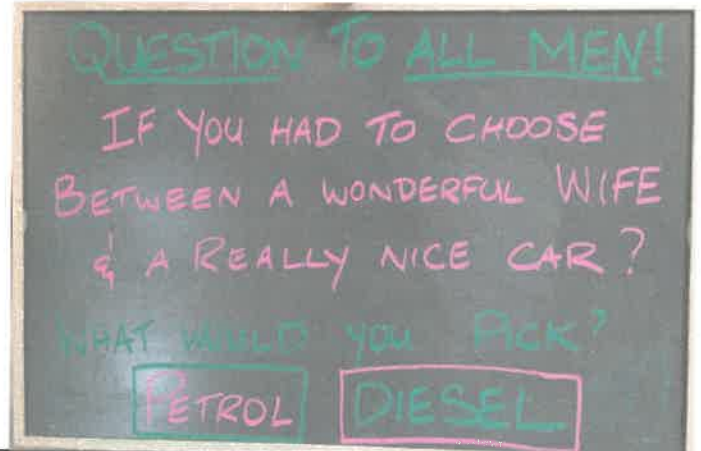 QUESTION TO ALL MEN!
IF YOU HAD TO CHOOSE
BETWEEN A WONDERFUL WIFE
& A REALLY NICE CAR?
WHAT WOULD YOU PICK?
PETROL DIESEL